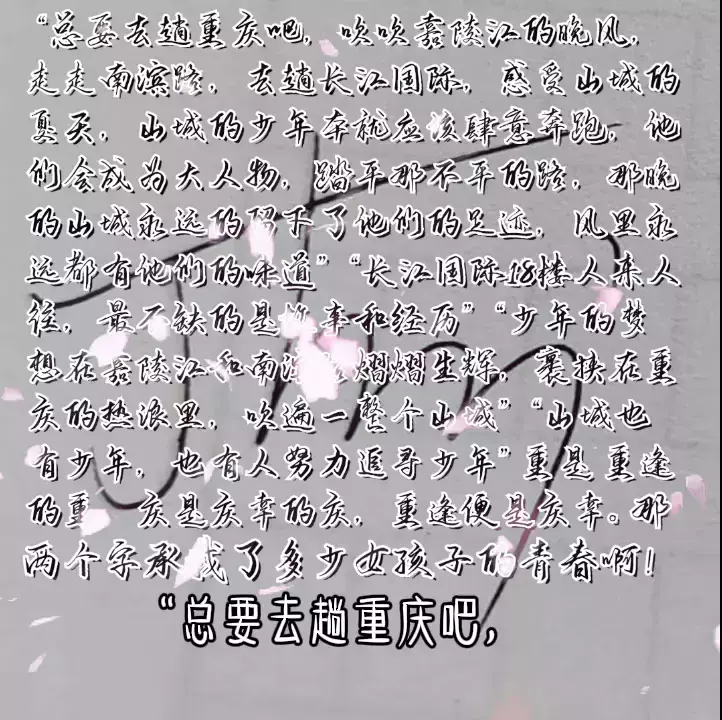 “总要去趟重庆吧，吹吹嘉陵江的晚风，
走走南滨路，去趟长江国际，感受山城的
夏天，山城的少年本就应该肆意奔跑，他
们会成为大人物，踏平那不平的路，那晚
的山城永远的留下了他们的足迹，风里永
远都有他们的味道”“长江国际18楼人来人
往，最不缺的是故事和经历”“少年的梦
想在嘉陵江和南滨路熠熠生辉，裹挟在重
庆的热浪里，吹遍一整个山城”“山城也
有少年，也有人努力追寻少年”重是重逢
的重 庆是庆幸的庆，重逢便是庆幸。那
两个字承载了多少女孩子的青春啊！
“总要去趟重庆吧，